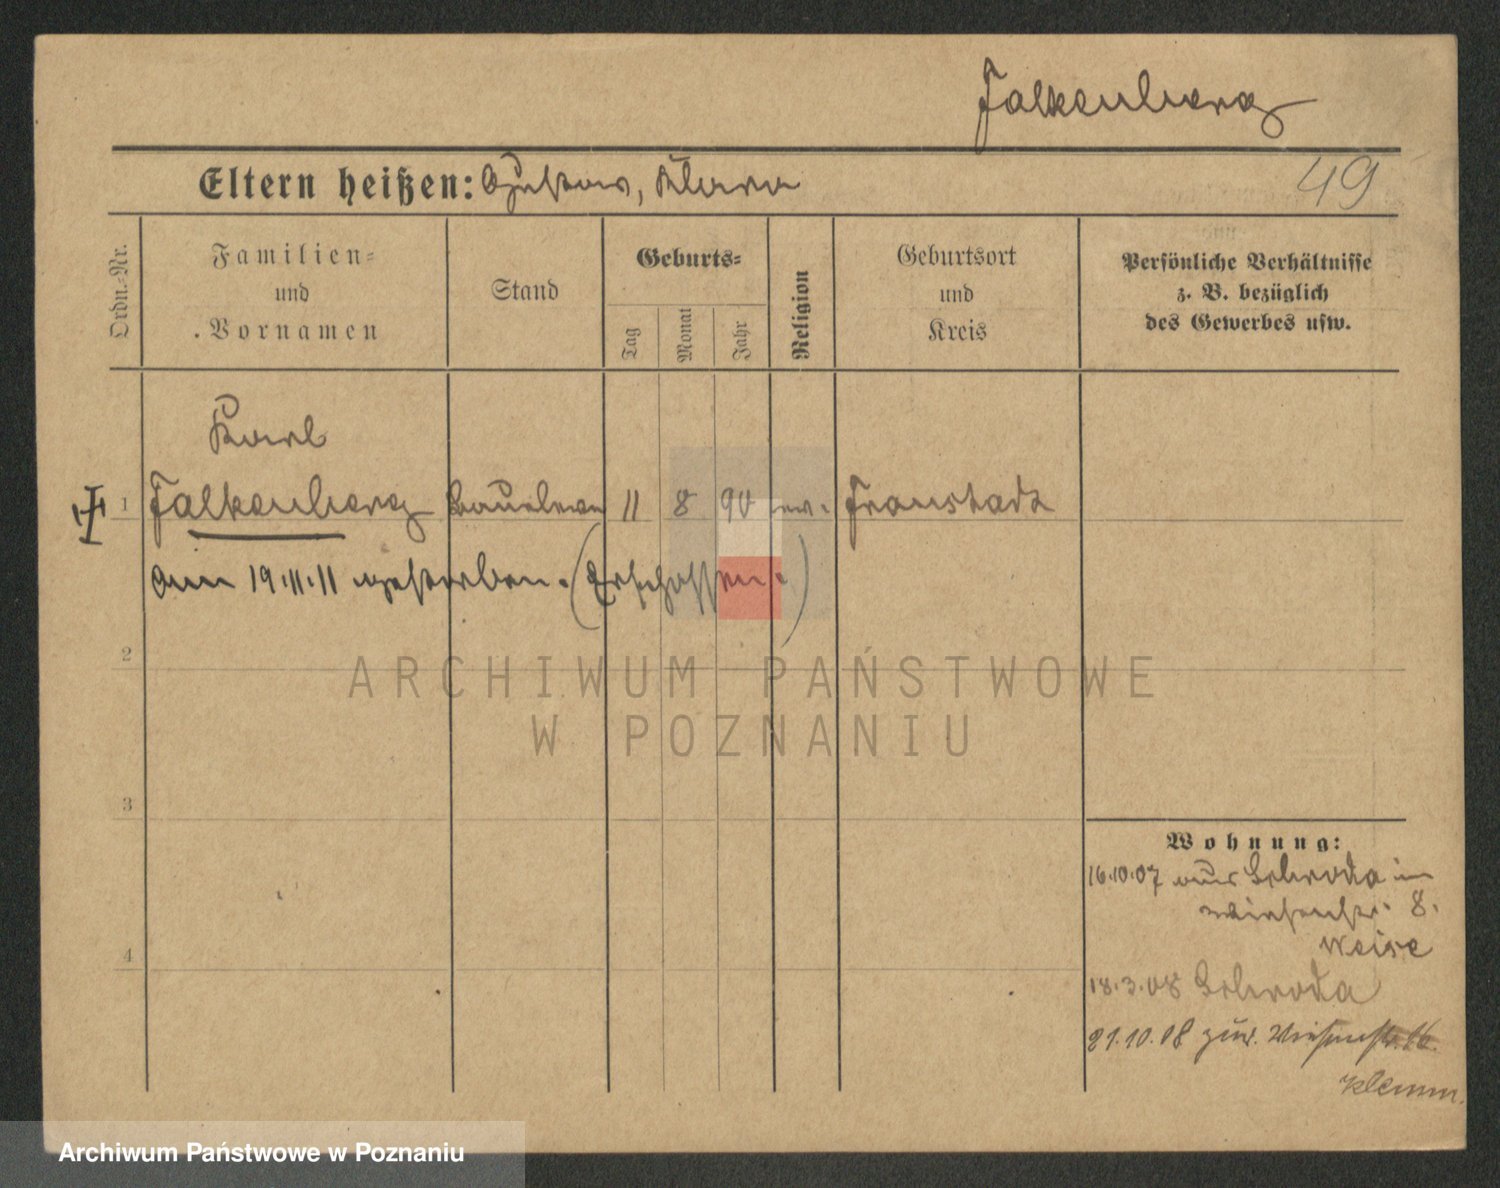 Falkenberg
Eltern heißen: Gustav, Klara
49
Ordn.-Nr.
Familien-
und
Vornamen
Stand
Geburts-
Tag
Monat
Jahr
Religion
Geburtsort
und
Kreis
Persönliche Verhältnisse
z. B. bezüglich
des Gewerbes usw.
Karl
1 Falkenberg Baueleve 11 8 90 ev. Fraustadt
am 19.11.11 gestorben. (Erschossen.)
2
3
4
ARCHIWUM PAŃSTWOWE
W POZNANIU
Wohnung:
16.10.07 aus Schroda in
Wiesenstr. 8.
Weise
18.3.08 Schroda
21.10.08 zur. Wiesenstr. 16.
Klemm.
Archiwum Państwowe w Poznaniu